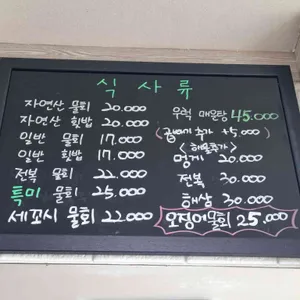 식사류
자연산 물회 20.000
자연산 횟밥 20.000
일반 물회 17.000
일반 횟밥 17.000
전복 물회 22.000
특미 물회 25.000
세꼬시 물회 22.000
우럭 매운탕 45.000
(곱빼기 추가 +5.000)
<해물추가>
멍게 20.000
전복 30.000
해삼 30.000
오징어물회 25.000